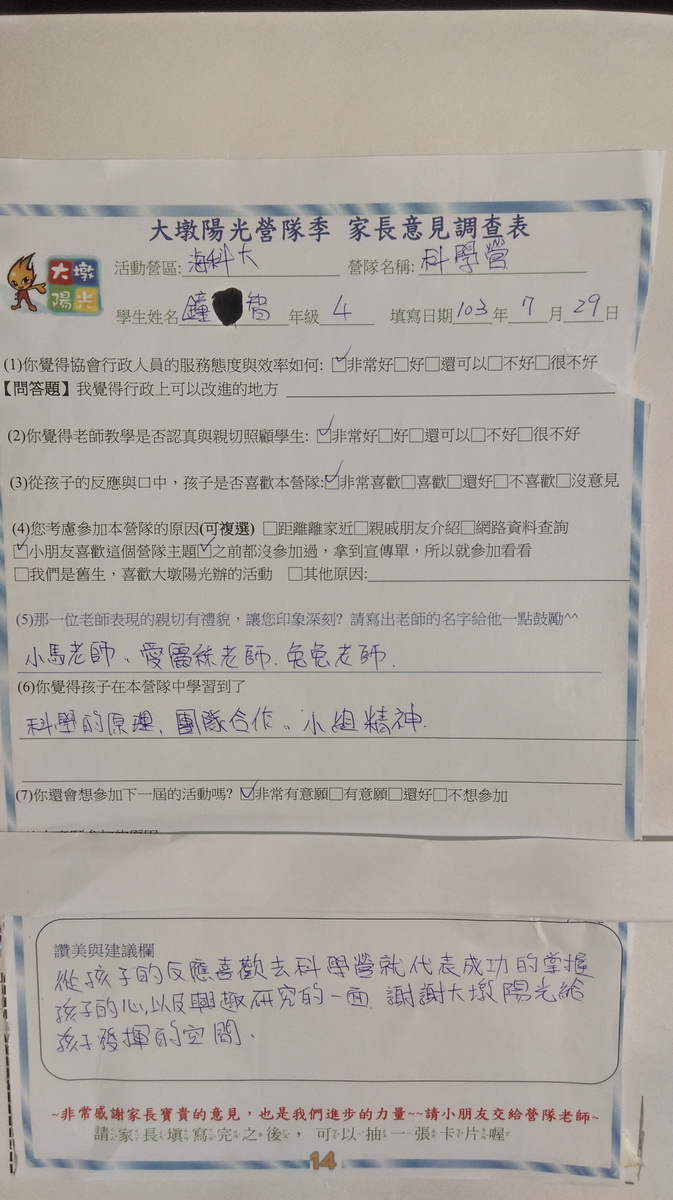 大墩陽光營隊季 家長意見調查表
大墩陽光
活動營區:海科大 營隊名稱:科學營
學生姓名鐘 智 年級4 填寫日期103年7月29日
(1)你覺得協會行政人員的服務態度與效率如何:☑非常好□好□還可以□不好□很不好
【問答題】我覺得行政上可以改進的地方
(2)你覺得老師教學是否認真與親切照顧學生:☑非常好□好□還可以□不好□很不好
(3)從孩子的反應與口中，孩子是否喜歡本營隊:☑非常喜歡□喜歡□還好□不喜歡□沒意見
(4)您考慮參加本營隊的原因(可複選) □距離離家近□親戚朋友介紹□網路資料查詢
☑小朋友喜歡這個營隊主題☑之前都沒參加過，拿到宣傳單，所以就參加看看
□我們是舊生，喜歡大墩陽光辦的活動 □其他原因:
(5)那一位老師表現的親切有禮貌，讓您印象深刻? 請寫出老師的名字給他一點鼓勵^^
小馬老師、愛麗絲老師.兔兔老師.
(6)你覺得孩子在本營隊中學習到了
科學的原理、團隊合作、小組精神.
(7)你還會想參加下一屆的活動嗎? ☑非常有意願□有意願□還好□不想參加
讚美與建議欄
從孩子的反應喜歡去科學營就代表成功的掌握
孩子的心,以及興趣研究的一面 謝謝大墩陽光給
孩子發揮的空間.
~非常感謝家長寶貴的意見，也是我們進步的力量~~請小朋友交給營隊老師~
請家長填寫完之後，可以抽一張卡片喔
14